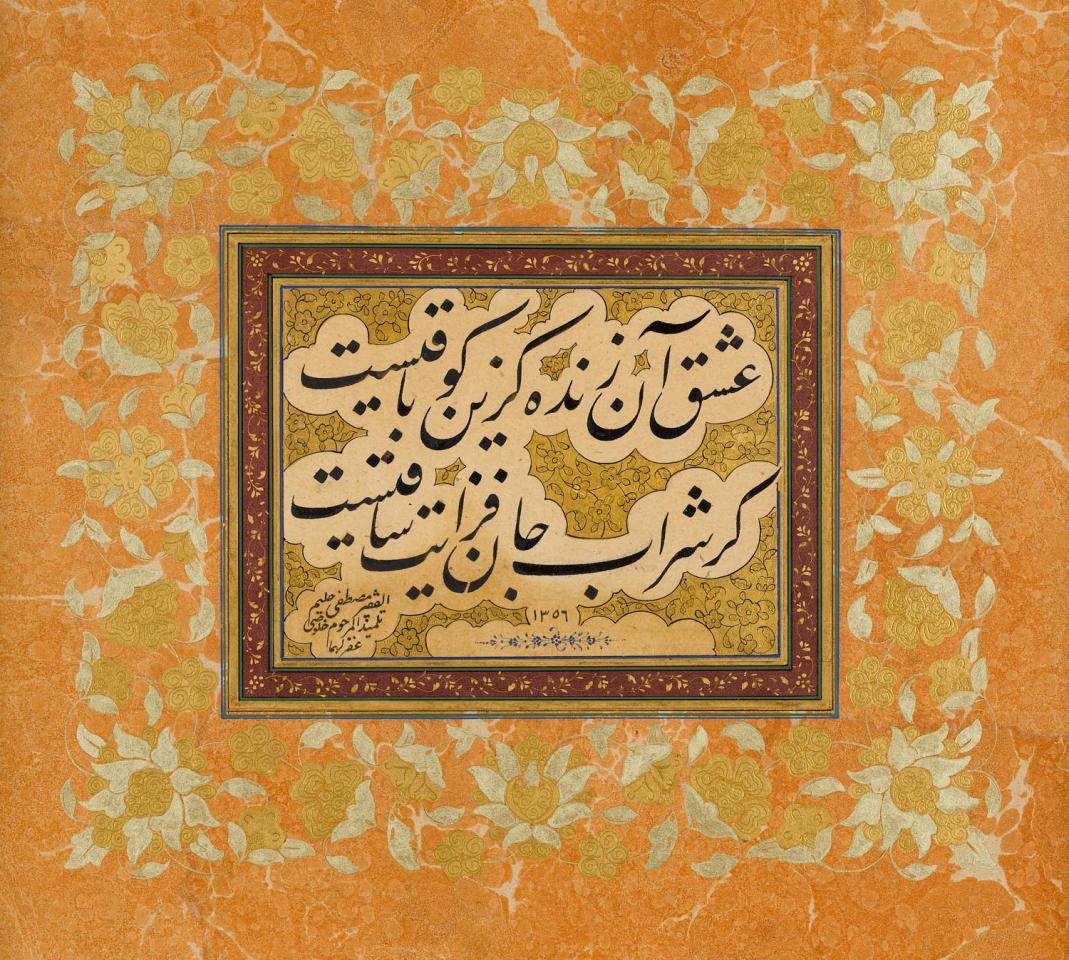 عشق آن زنده کزین کو باقیست
کز شراب جان فزایت ساقیست
الفقیر مصطفی حلیم
تلمیذ المرحوم خلوصی
غفر لهما
١٣٥٦